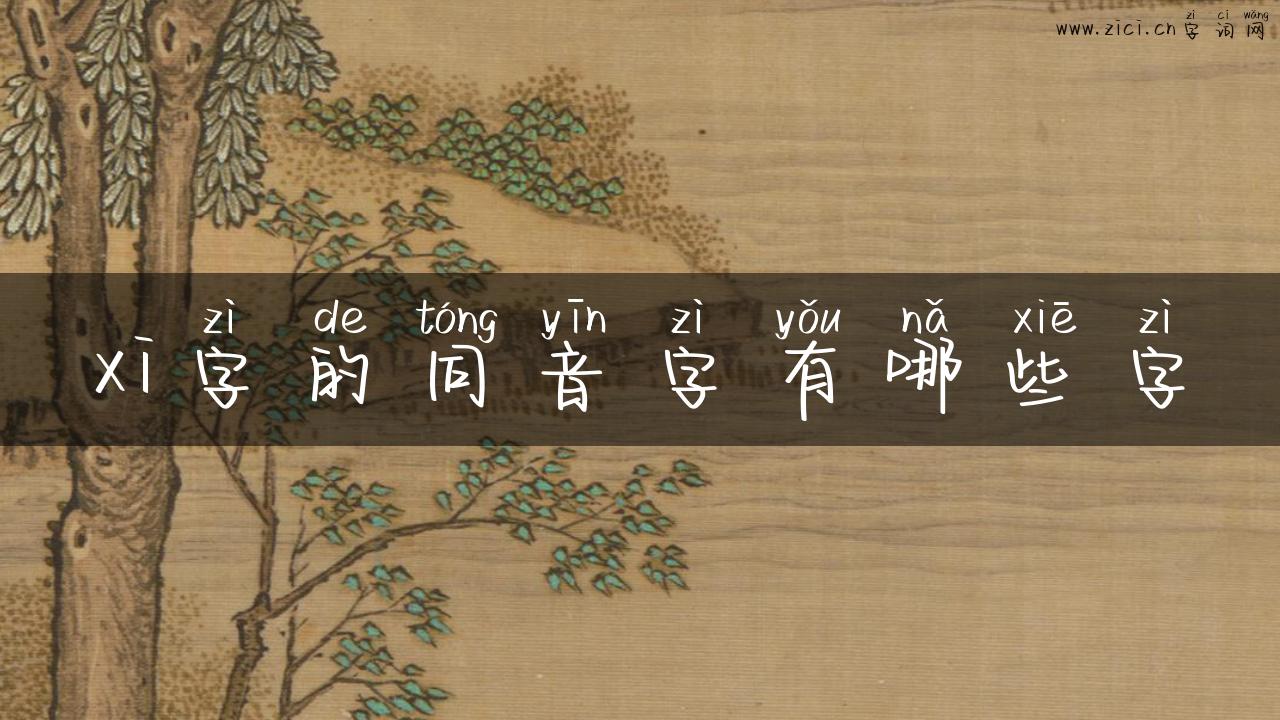 zì cí wǎng
www.zici.cn 字词网
zì de tóng yīn zì yǒu nǎ xiē zì
xī字的同音字有哪些字